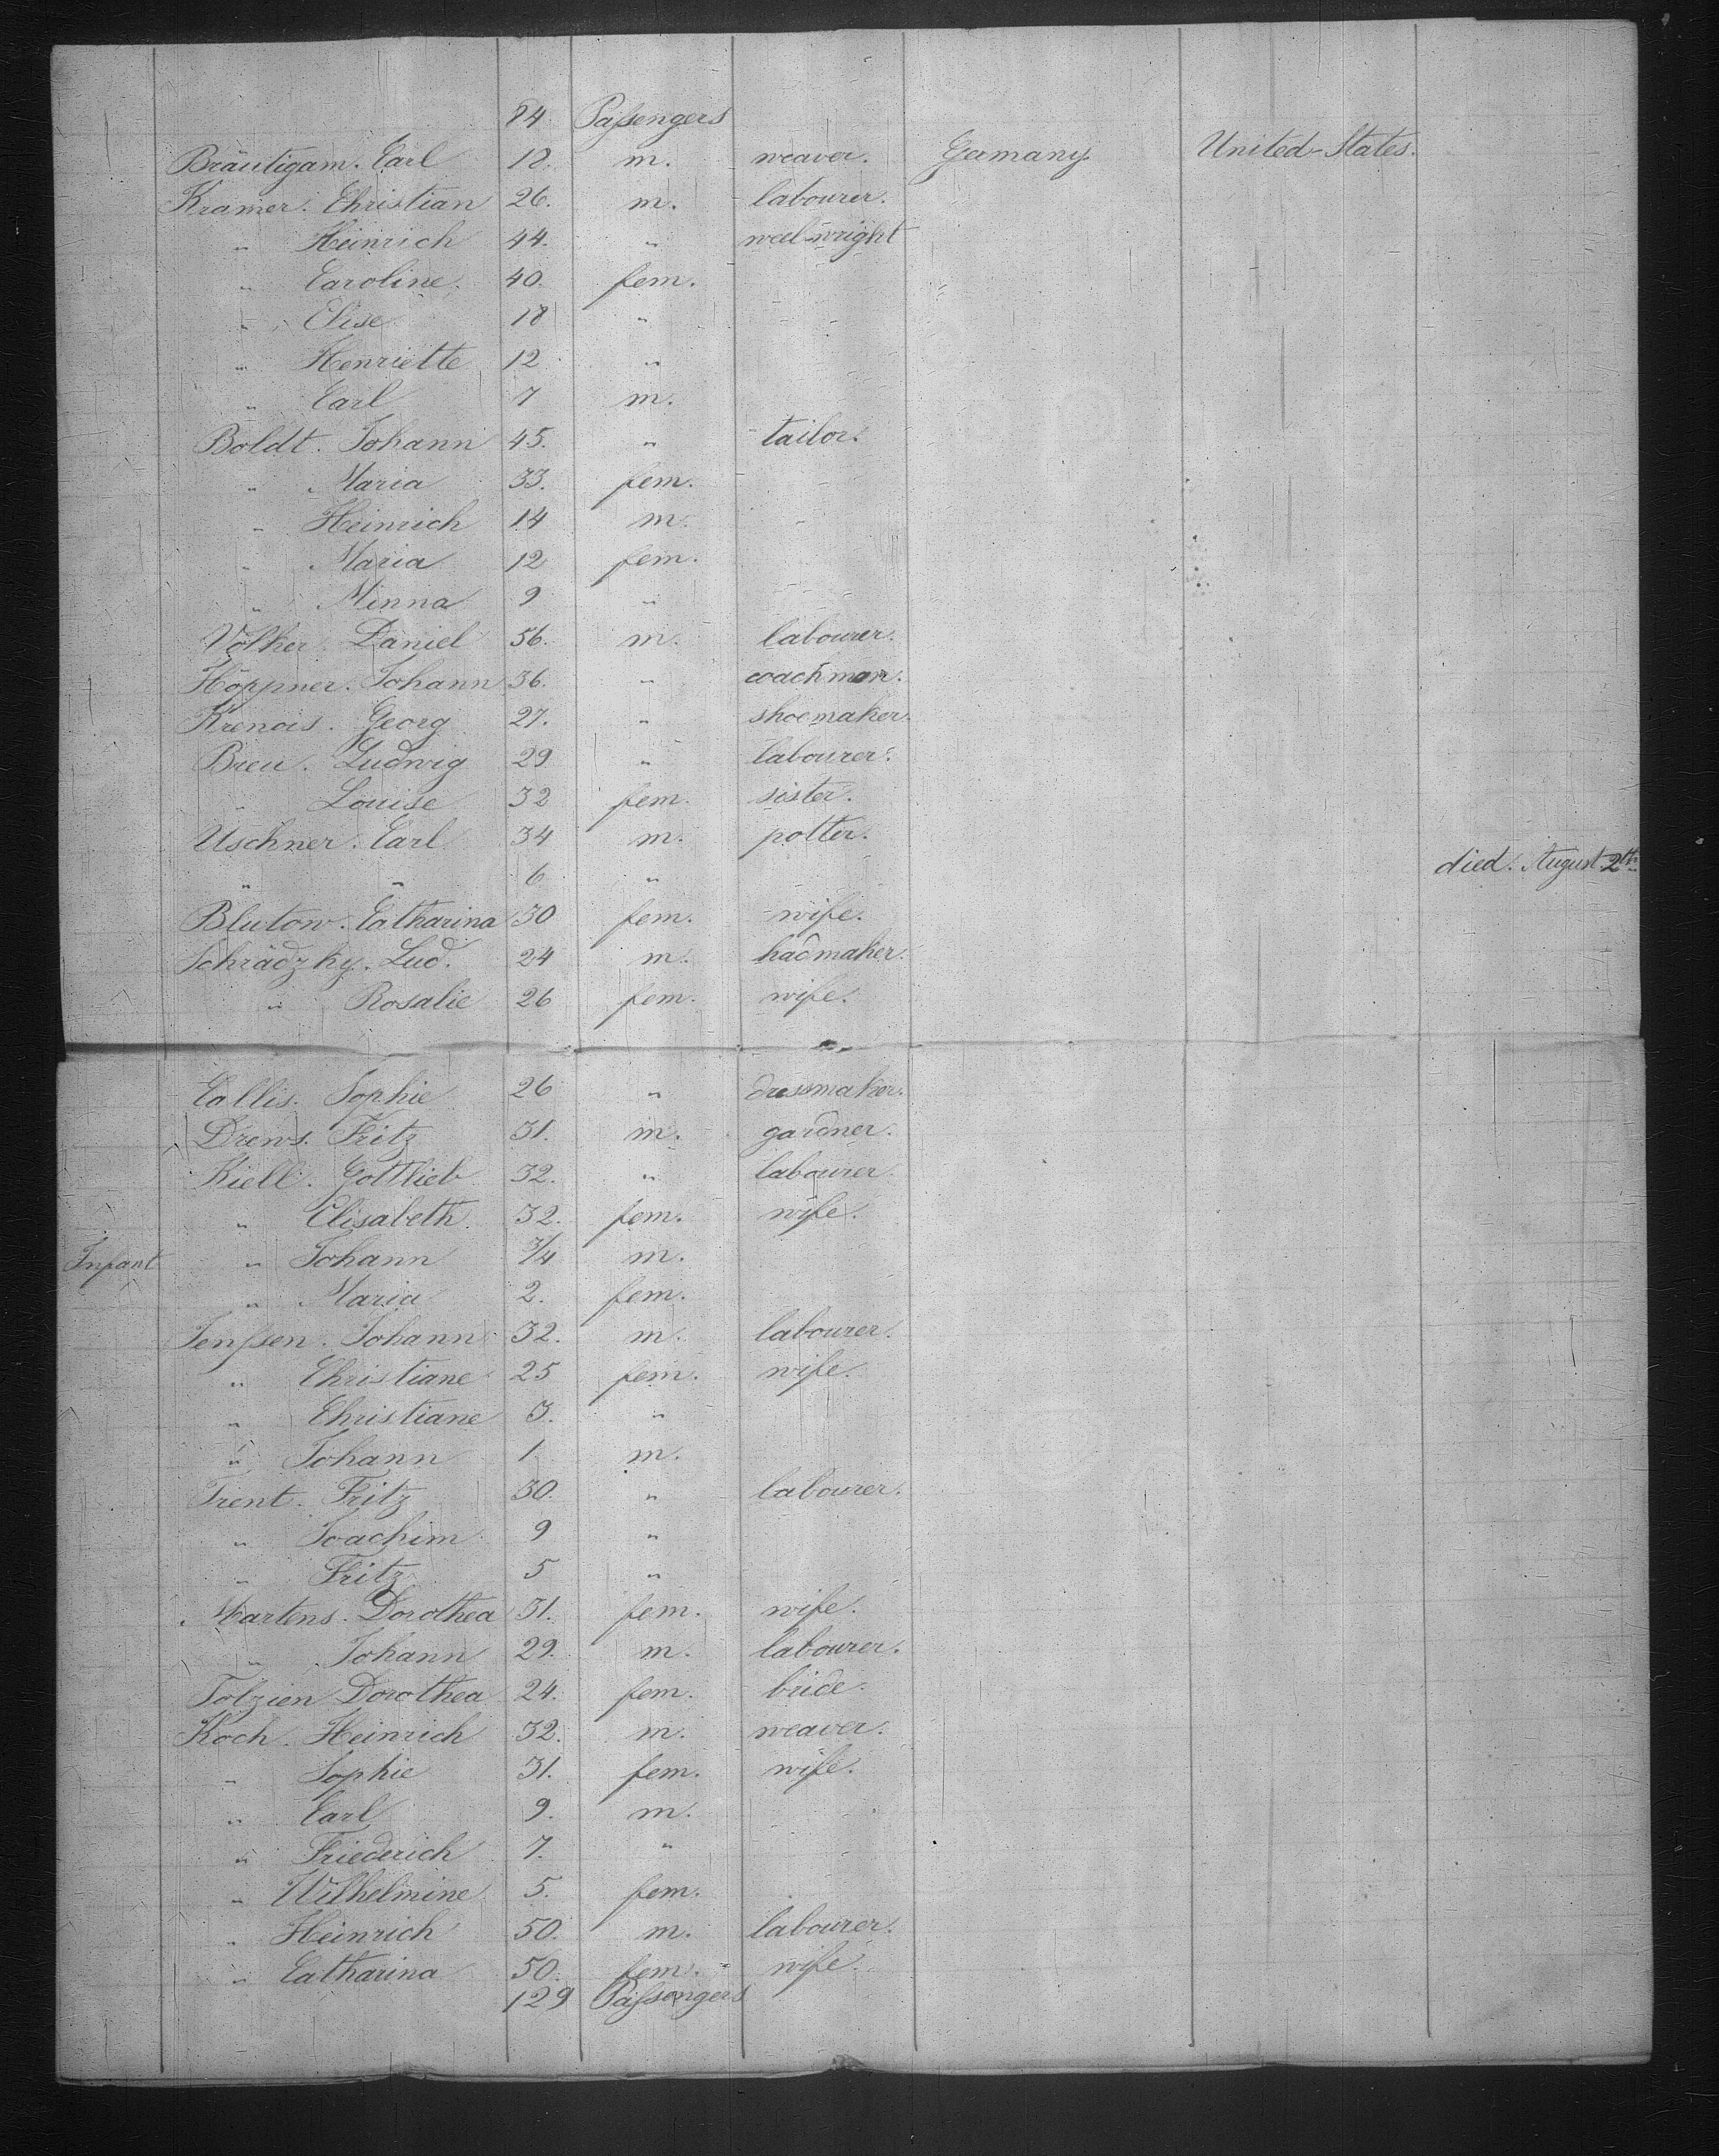 84 Passengers
Bräutigam. Carl 18. m. weaver. Germany. United-States.
Kramer. Christian 26. m. labourer.
" Heinrich 44. " weel-wright
" Caroline. 40. fem.
" Elise 18 "
" Henriette 12 "
" Carl 7 m.
Boldt. Johann 45. " tailor.
" Maria 33. fem.
" Heinrich 14 m.
" Maria 12 fem.
" Minna 9 "
Völker. Daniel 56. m. labourer.
Höppner. Johann 36. " coachman.
Krenois. Georg 27. " shoemaker.
Breu. Ludwig 29 " labourer.
" Louise 32 fem. sister.
Uschner. Carl 34 m. potter.
" " 6 " died. August 2th
Blutow. Catharina 30 fem. wife.
Schrädzky. Lud. 24 m. hadmaker.
" Rosalie 26 fem. wife.
Callis. Sophie 26 " dressmaker.
Drews. Fritz 31. m. gardner.
Kiell. Gottlieb 32. " labourer.
" Elisabeth. 32. fem. wife.
Infant " Johann 3/4 m.
" Maria 2. fem.
Jenssen. Johann 32. m. labourer.
" Christiane 25 fem. wife.
" Christiane 3. "
" Johann 1 m.
Trent. Fritz 30. " labourer.
" Joachim 9 "
" Fritz 5 "
Martens. Dorothea 31. fem. wife.
" Johann 29. m. labourer.
Tolzien Dorothea 24. fem. bride.
Koch. Heinrich 32. m. weaver.
" Sophie 31. fem. wife.
" Carl 9. m.
" Friederich 7. "
" Wilhelmine 5. fem.
" Heinrich 50. m. labourer.
" Catharina 50. fem. wife.
129 Passengers